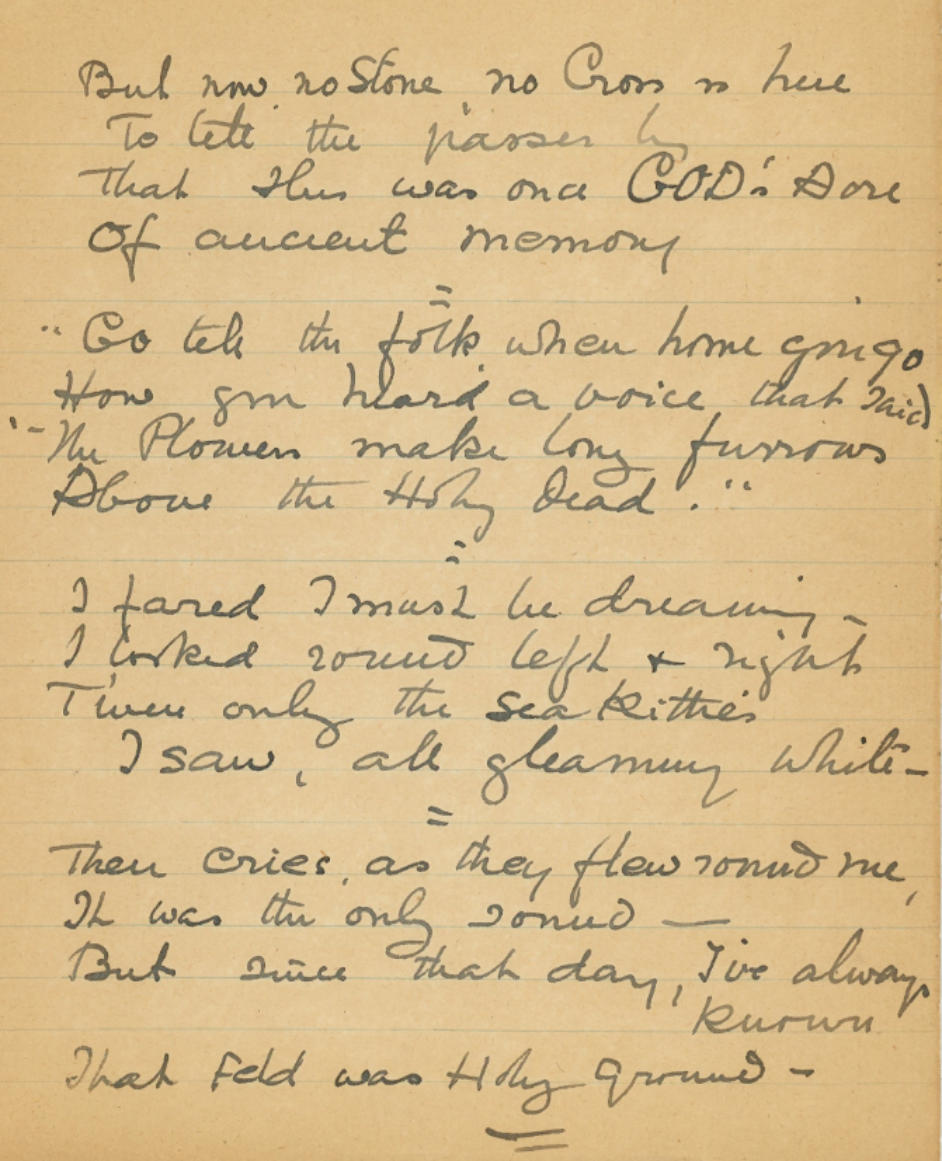 But now no Stone, no Cross is here
To tell the passer by
That this was once GOD's Acre
Of ancient memory
=
"Go tell the folk, when home you go
How you heard a voice that said
"The Plowers make long furrows
Above the Holy Dead."
=
I fared I must be dreaming -
I looked round left & right
T'were only the sea Kitties
I saw, all gleaming white -
=
Their cries, as they flew round me,
It was the only sound —
But since that day, I've always
known
That Feld was Holy Ground -